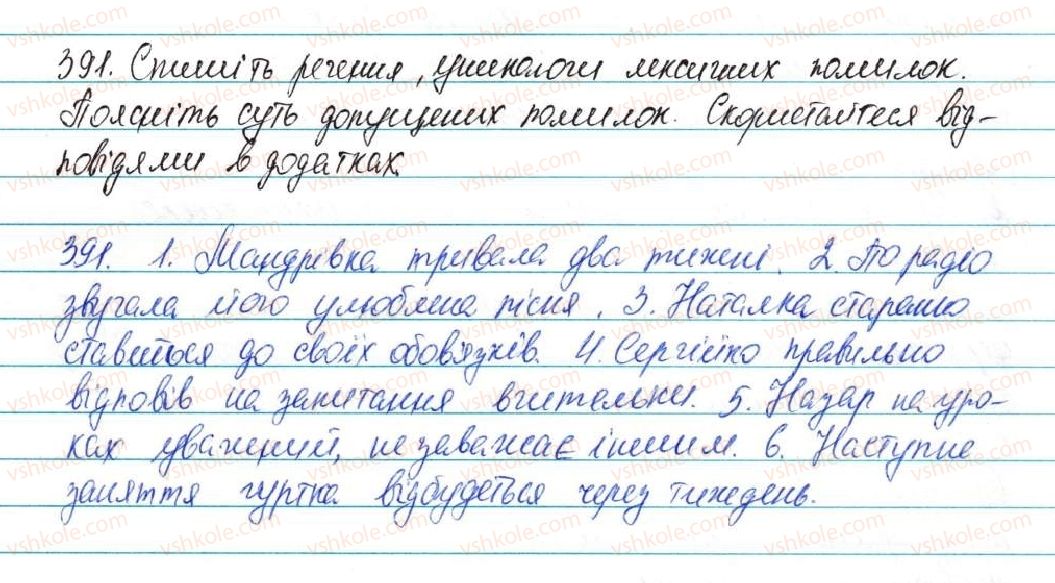 391. Спишіть речення, уникаючи лексичних помилок.
Поясніть суть допущених помилок. Скористайтеся від-
повідями в додатках.
391. 1. Мандрівка тривала два тижні. 2. По радіо
звучала його улюблена пісня. 3. Наталка старанно
ставиться до своїх обов'язків. 4. Сергійко правильно
відповів на запитання вчительки. 5. Назар на уро-
ках уважний, не заважає іншим. 6. Наступне
заняття гуртка відбудеться через тиждень.